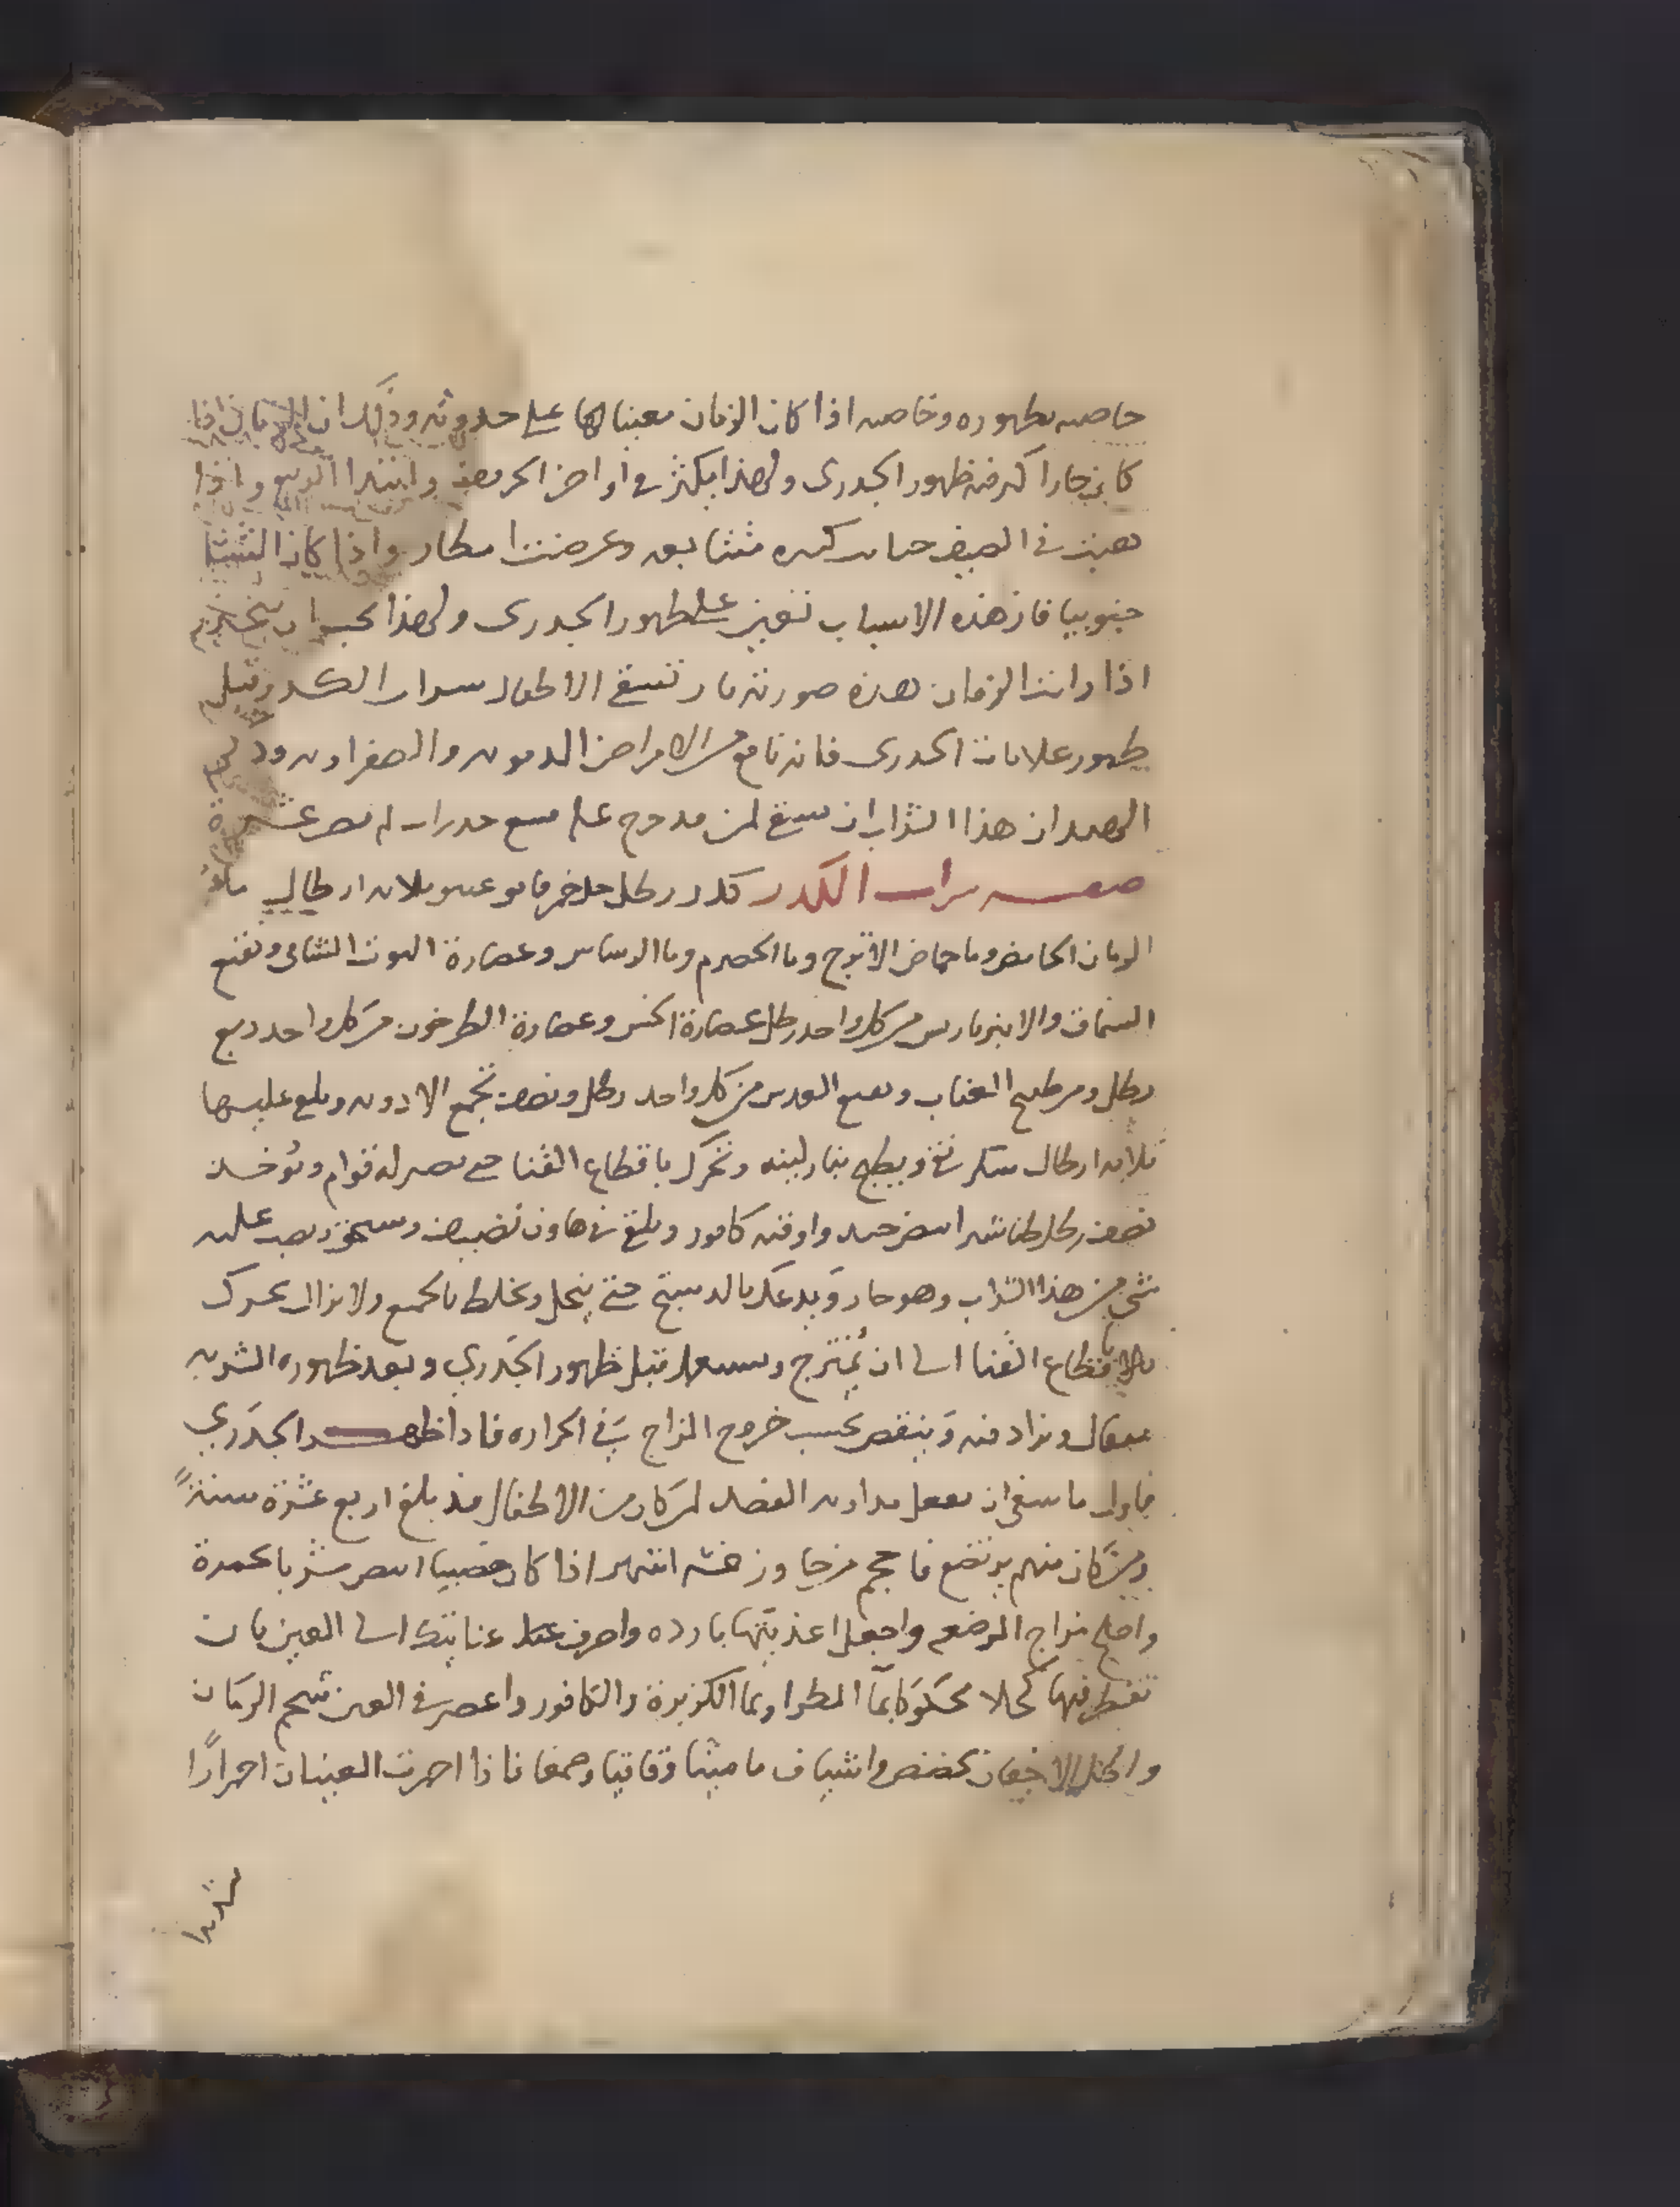 خاصه بظهوره وخاصه اذا كان الزمان معينا لها على حدوثه وذلك ان الزمان اذا
كان حارا كثر فيه ظهور الجدرى ولهذا يكثر فى اواخر الخريف وابتدا الربيع واذا
هبت فى الصيف كثيره متتابعه وعرضت امطار واذا كان الشتا
جنوبيا فان هذه الاسباب تعين على ظهور الجدرى ولهذا يجب ان
اذا رايت الزمان هذه صورته بان تسقى الاطفال شراب الكدر قبل
ظهور علامات الجدرى فانه نافع من الامراض الدمويه والصفراويه
الهند ان هذا الشراب ان سقى لمن قد خرج عليه تسع جدرات لم تصر عشرة
صفه شراب الكدر كدر رطل خل خمر ثلاثه ارطال ماء
الرمان الحامض وما حماض الاترج وما الحصرم وما الريباس وعصارة التوت الشامى ونقيع
السماق والانبرباريس من كل واحد رطل عصارة الخس وعصارة الطرخون من كل واحد ربع
رطل ومن طبيخ العناب ونقيع العدس من كل واحد رطل ونصف تجمع الادويه ويلقى عليها
ثلاثه ارطال سكر نقى ويطبخ بنار لينه وتحرك باقطاع القنا حتى يصير له قوام ويوخذ
نصف رطل طباشير ابيض جيد واوقيه كافور ويلقى فى هاون نضيف ويسحق ويصب عليه
شى من هذا الشراب وهو حار ويدعك بالدستج حتى ينحل ويخلط بالجميع ولا يزال يحرك
باقطاع القنا الى ان يمتزج ويستعمل قبل ظهور الجدري وبعد ظهوره الشربه
مثقال ويزاد فيه وينقص بحسب خروج المزاج في الحراره فاذا ظهر الجدري
فاول ما ينبغى ان يفعل مداويه الفصد لمن كان من الاطفال قد بلغ اربع عشرة سنةً
ومن كان منهم يرتضع فاحجم من جاوز خمسه اشهر اذا كان خصيبا ابيض مشربا بحمرة
واصلح مزاج المرضع واجعل اغذيتها بارده واصرف عنايتك الى العين بان
تقطر فيها كحلا محكوكا بماء المطر او بما الكزبرة والكافور واعصر فى العين شحم الرمان
واكحل الاجفان بحضض واشياف ماميثا وقاقيا وصمغا فاذا احمرت العينان احمرارًا
شديدا